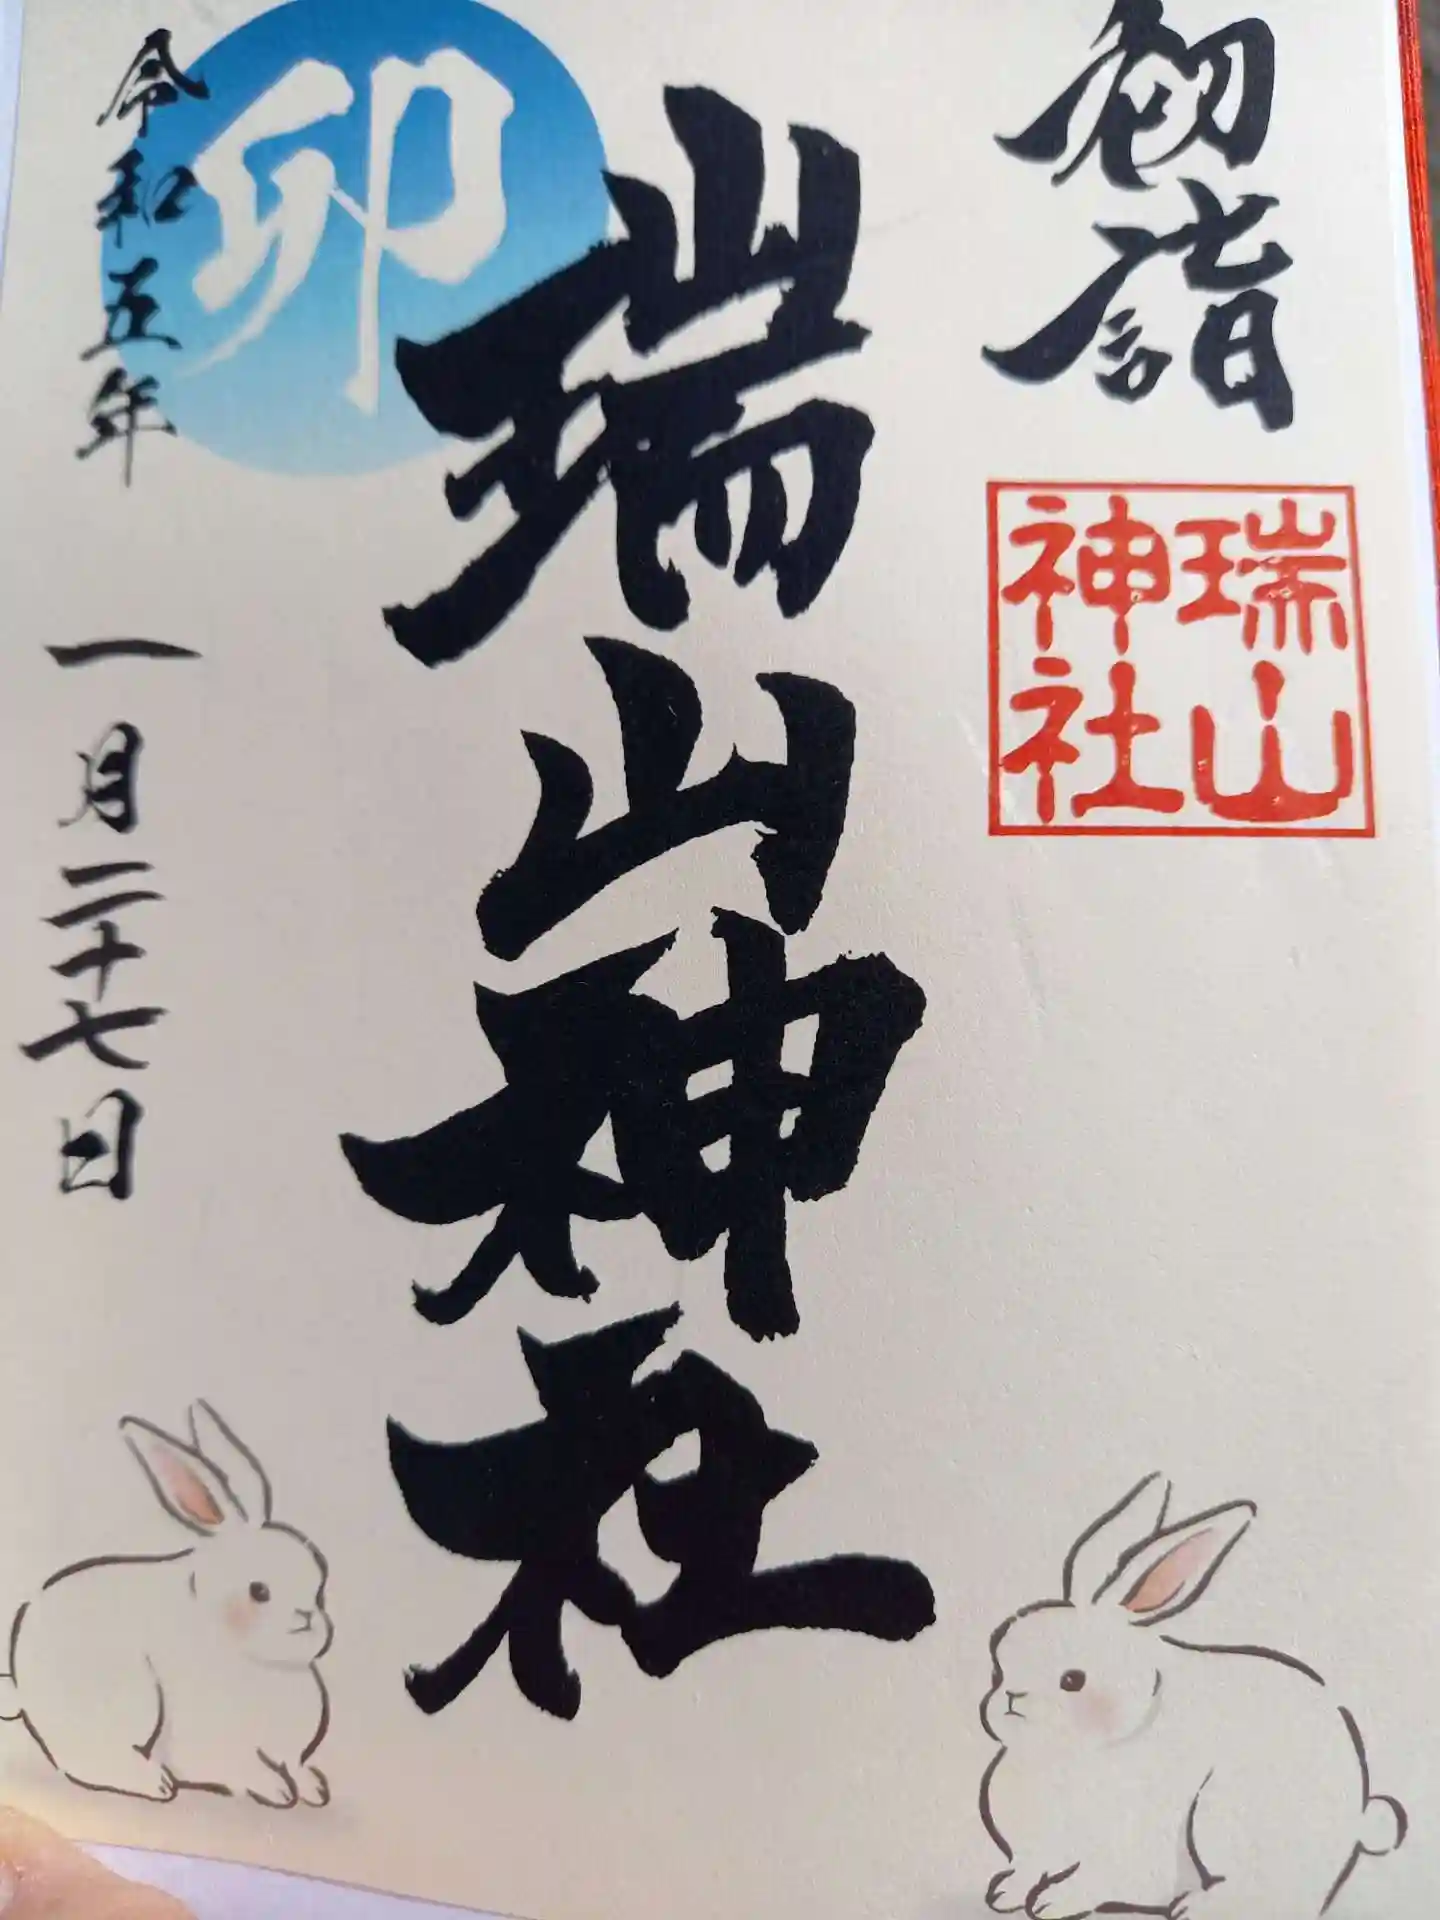 初詣
瑞山
神社
瑞山神社
卯
令和五年
一月二十七日